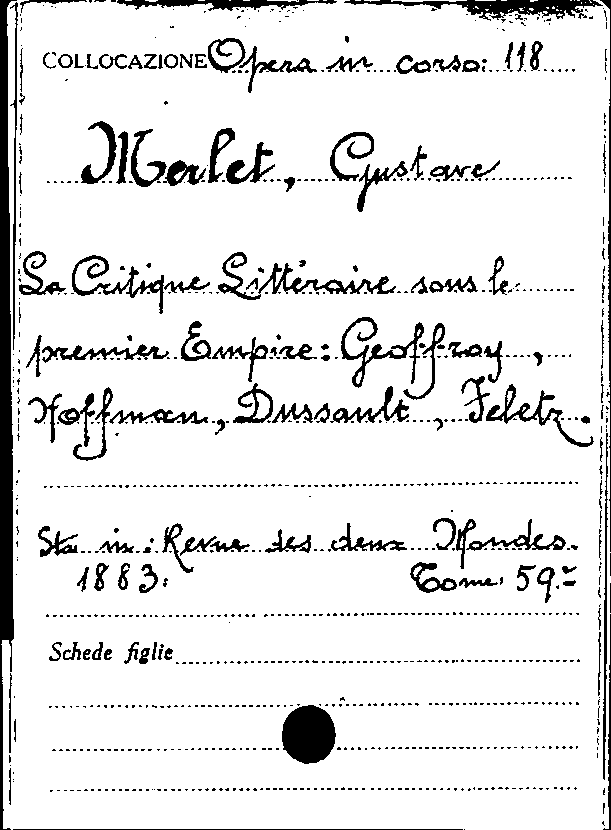 COLLOCAZIONE Opera in corso: 118
Merlet, Gustave
La Critique Littéraire sous le
premier Empire: Geoffroy,
Hoffman, Dussault, Feletz.
Sta in: Revue des deux Mondes.
1883. Tome 59.º
Schede figlie